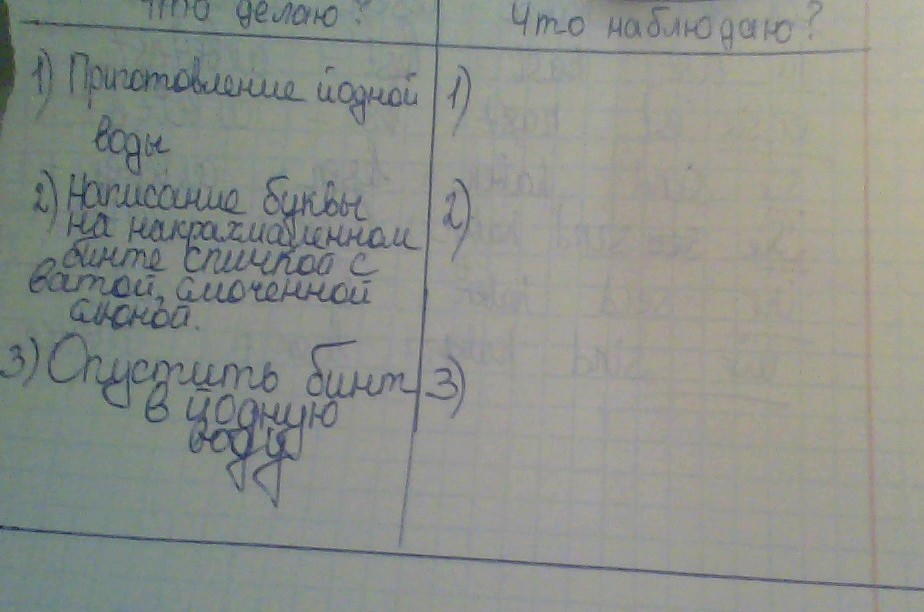 Что делаю?
Что наблюдаю?
1) Приготовление йодной
воды
2) Написание буквы
на накрахмаленном
бинте спичкой с
ватой, смоченной
слюной.
3) Опустить бинт
в йодную
воду
1)
2)
3)